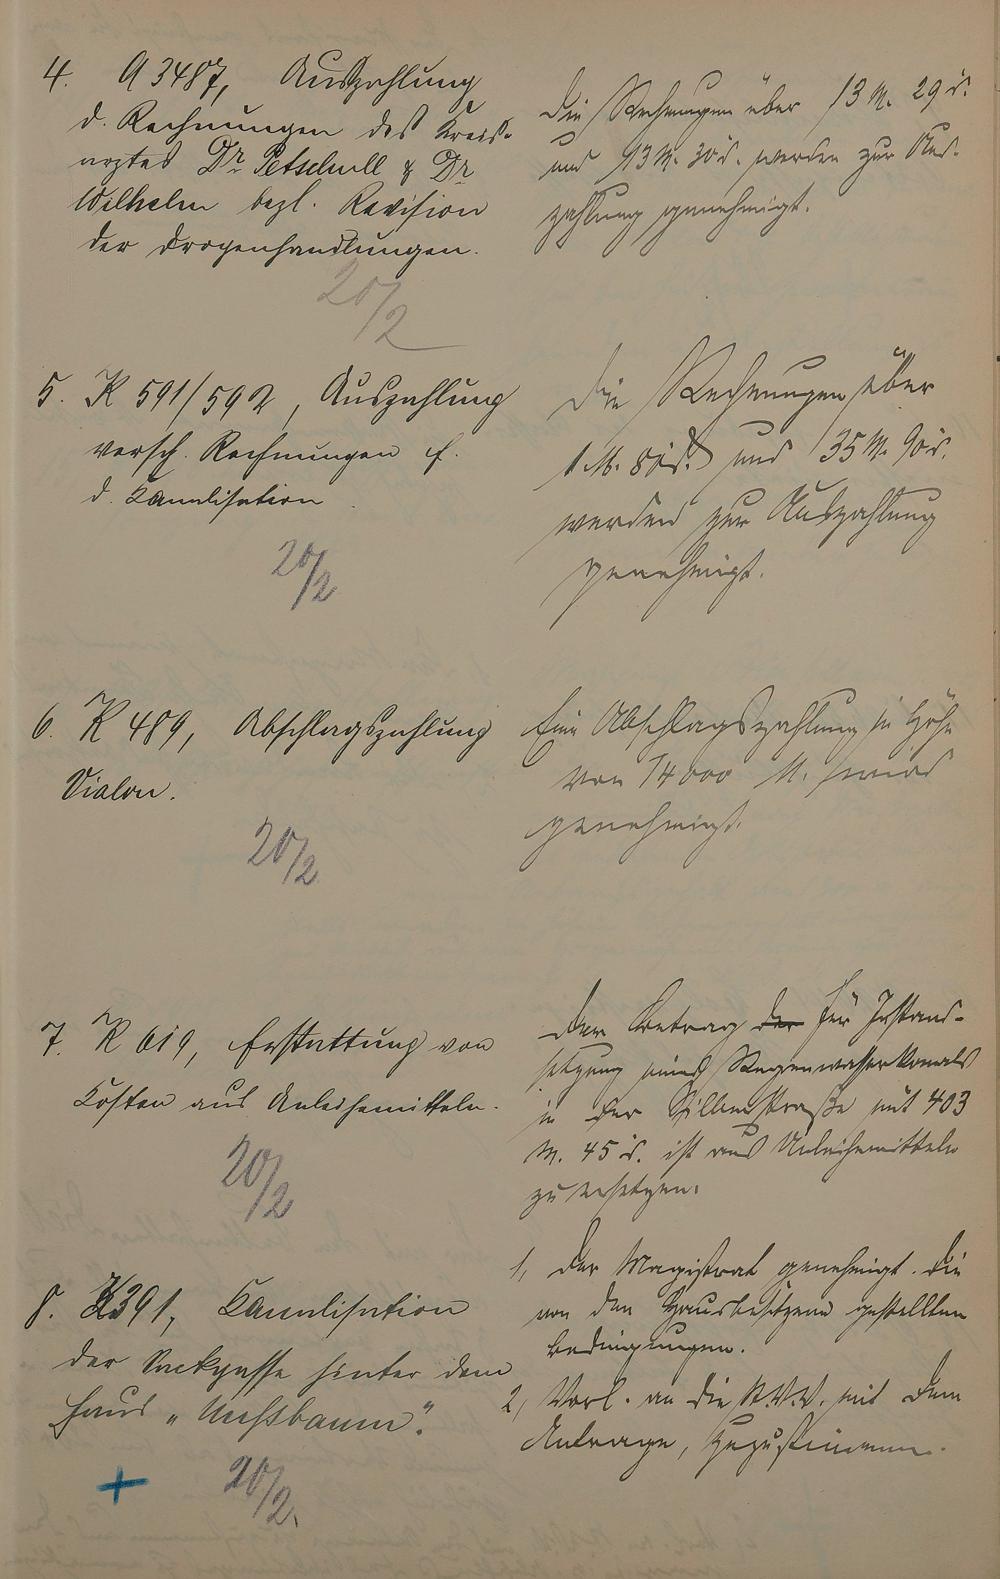 4. A 3487, Auszahlung
d. Rechnungen des Kreis-
arztes Dr. Petschull & Dr.
Wilhelm bezl. Revision
der Drogenhandlungen.
20/2
Die Rechnungen über 13 M. 29 d.
und 13 M. 30 d. werden zur Aus-
zahlung genehmigt.
5. K 591/592, Auszahlung
versch. Rechnungen f.
d. Kanalisation
20/2
Die Rechnungen über
1 M. 80 d. und 135 M. 90 d.
werden zur Auszahlung
genehmigt.
6. K 489, Abschlagszahlung
Vialon.
20/2
Eine Abschlagszahlung in Höhe
von 14000 M. wird
genehmigt.
7. K 619, Erstattung von
Kosten aus Anleihemitteln.
20/2
Der Betrag der für Instand-
setzung eines Regenwasserkanals
in der straße mit 403
M. 45 d. ist aus Anleihemitteln
zu ersetzen.
8. K 391, Kanalisation
der Sackgasse hinter dem
Haus „Nussbaum".
20/2.
1, Der Magistrat genehmigt die
von den Hausbesitzern gestellten
Bedingungen.
2, Vorl. an die St.V.V. mit dem
Antrage, zuzustimmen.